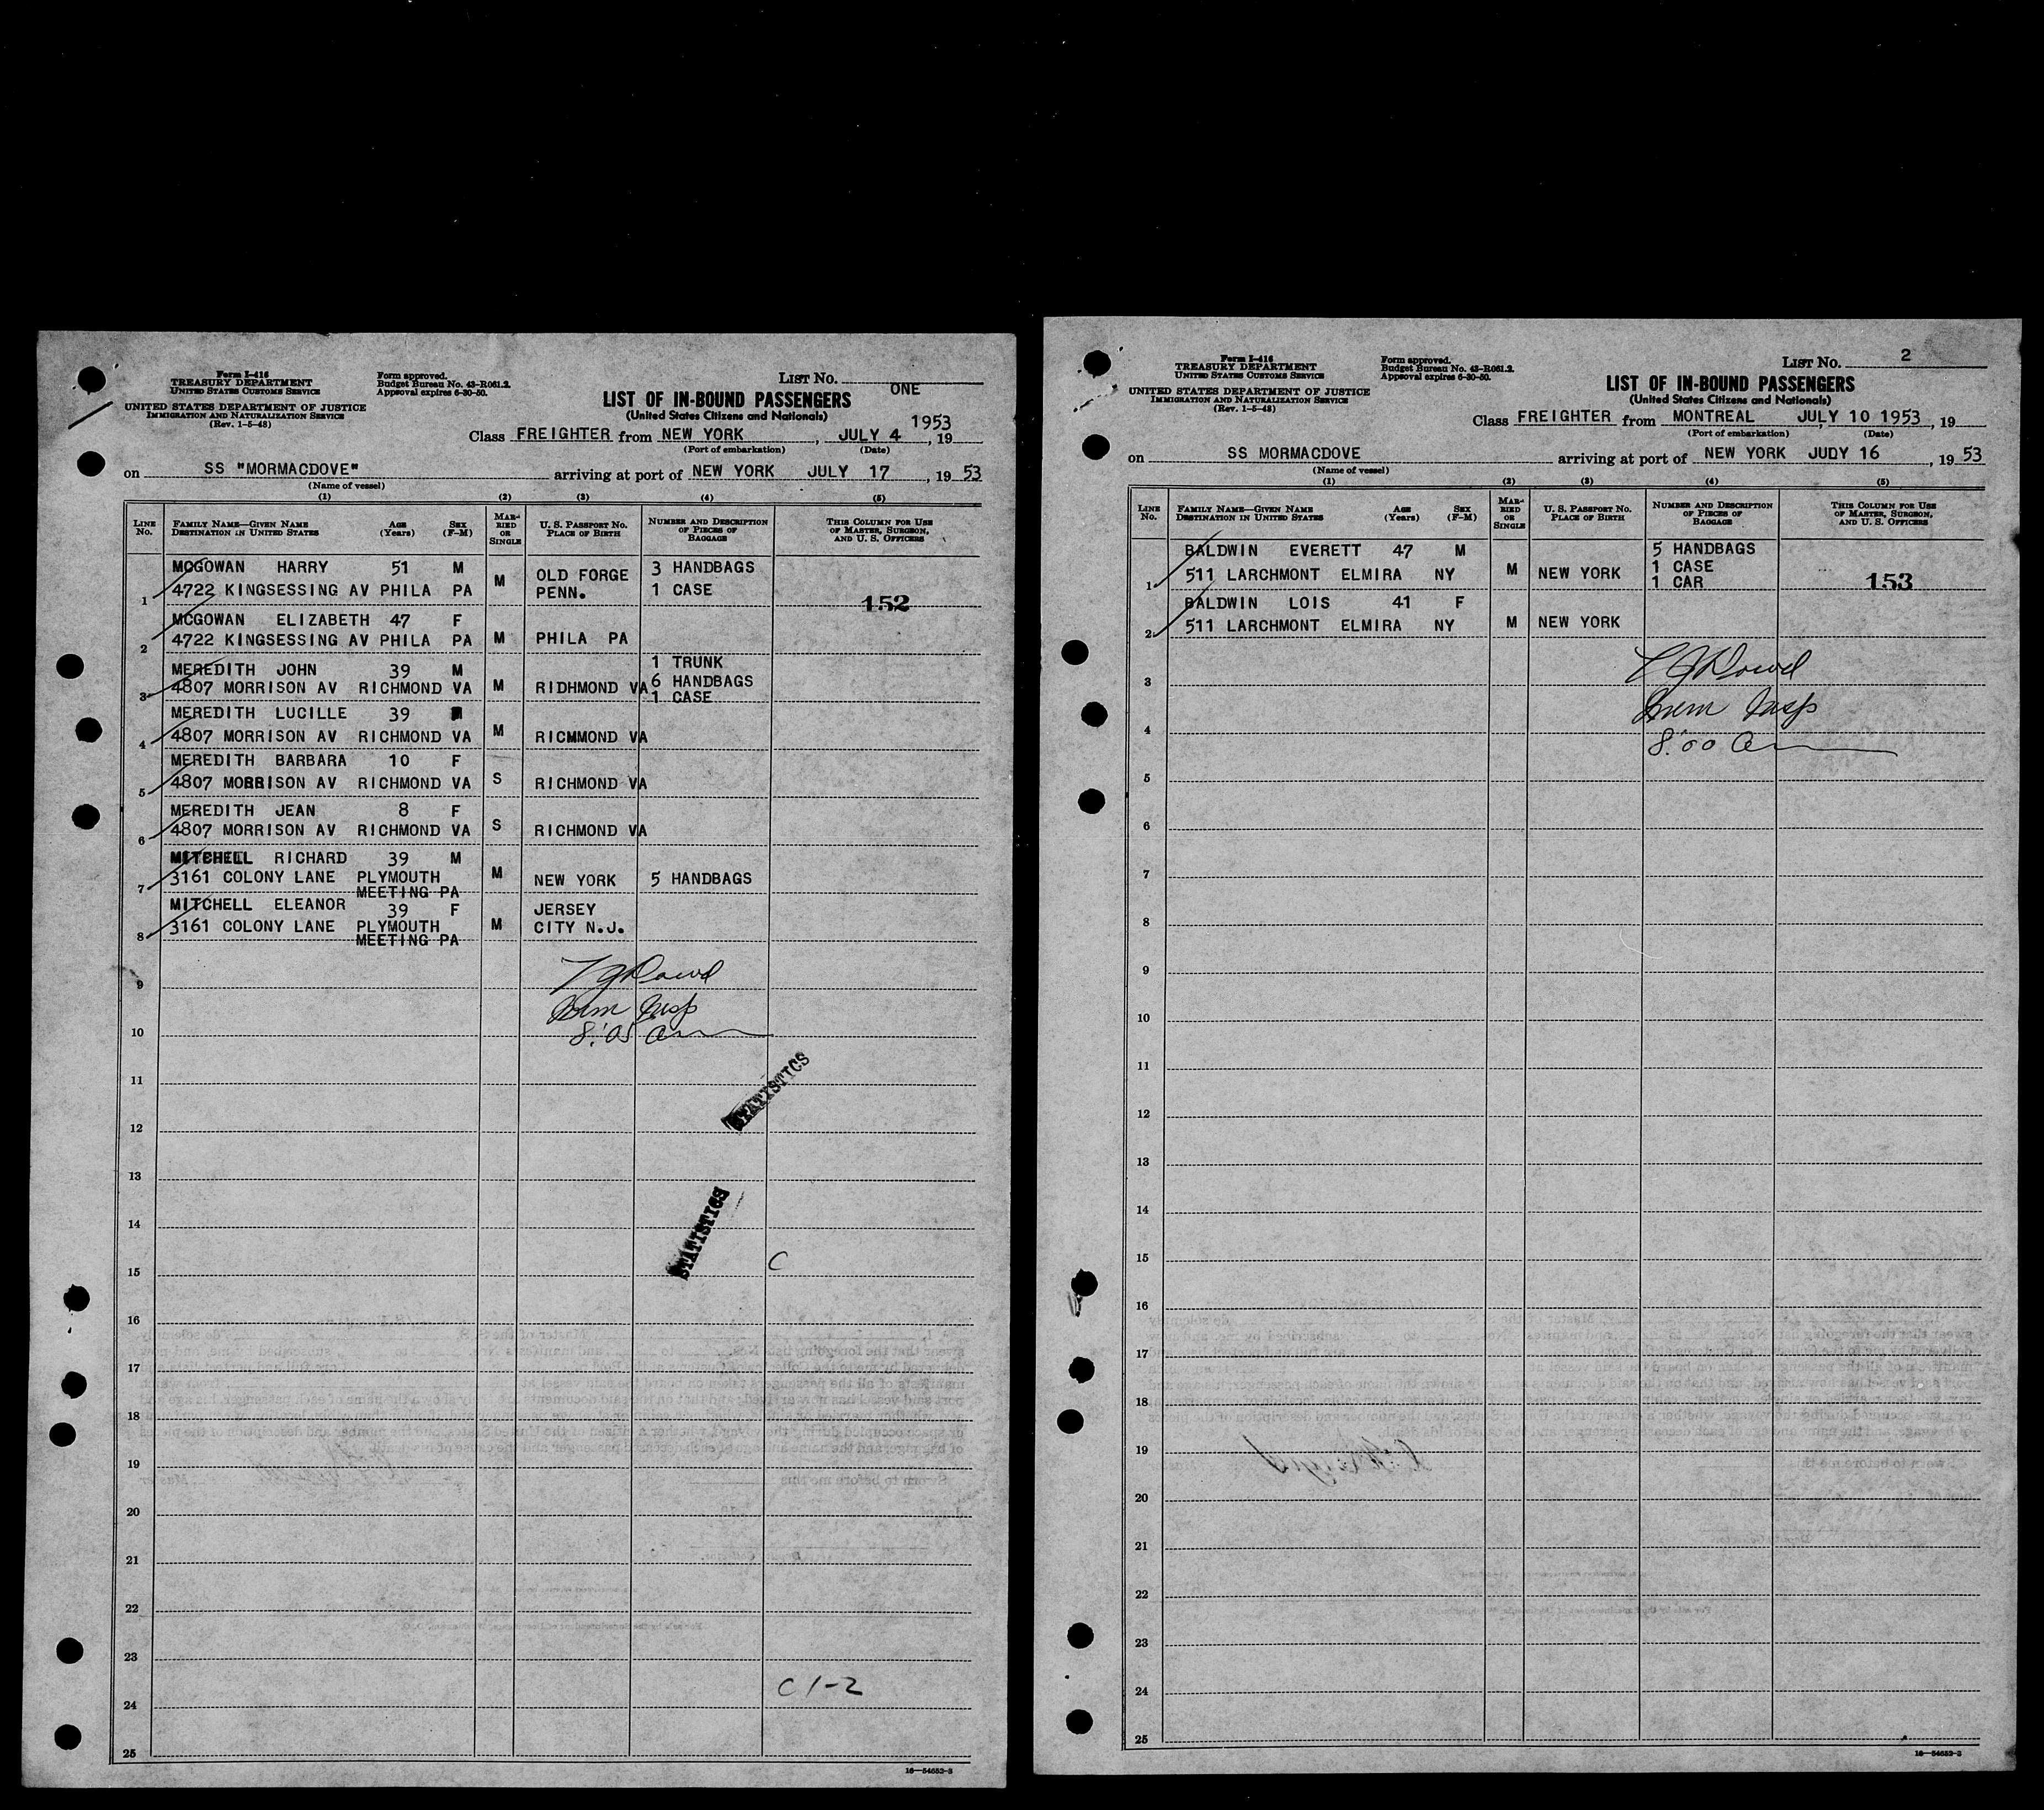 Form I-416
TREASURY DEPARTMENT
UNITED STATES CUSTOMS SERVICE
UNITED STATES DEPARTMENT OF JUSTICE
IMMIGRATION AND NATURALIZATION SERVICE
(Rev. 1-5-48)
Form approved.
Budget Bureau No. 43-R061.2.
Approval expires 6-30-50.
LIST NO. ONE
LIST OF IN-BOUND PASSENGERS
(United States Citizens and Nationals)
Class FREIGHTER from NEW YORK, JULY 4 1953, 19
(Port of embarkation) (Date)
on SS "MORMACDOVE" arriving at port of NEW YORK JULY 17, 19 53
(Name of vessel)
(1) (2) (3) (4) (5)
LINE NO. FAMILY NAME—GIVEN NAME DESTINATION IN UNITED STATES AGE (Years) SEX (F-M) MARRIED OR SINGLE U. S. PASSPORT NO. PLACE OF BIRTH NUMBER AND DESCRIPTION OF PIECES OF BAGGAGE THIS COLUMN FOR USE OF MASTER, SURGEON, AND U. S. OFFICERS
MCGOWAN HARRY 51 M M OLD FORGE 3 HANDBAGS
1 4722 KINGSESSING AV PHILA PA PENN. 1 CASE 152
MCGOWAN ELIZABETH 47 F
2 4722 KINGSESSING AV PHILA PA M PHILA PA
MEREDITH JOHN 39 M 1 TRUNK
3 4807 MORRISON AV RICHMOND VA M RIDHMOND VA 6 HANDBAGS
1 CASE
MEREDITH LUCILLE 39
4 4807 MORRISON AV RICHMOND VA M RICMMOND VA
MEREDITH BARBARA 10 F
5 4807 MORRISON AV RICHMOND VA S RICHMOND VA
MEREDITH JEAN 8 F
6 4807 MORRISON AV RICHMOND VA S RICHMOND VA
MITCHELL RICHARD 39 M
7 3161 COLONY LANE PLYMOUTH M NEW YORK 5 HANDBAGS
MEETING PA
MITCHELL ELEANOR 39 F JERSEY
8 3161 COLONY LANE PLYMOUTH M CITY N.J.
MEETING PA
9
Dowd
Imm Insp
10 8:05 a
11
STATISTICS
12
13
14
STATISTICS
15 C
16
17
18
19
20
21
22
23
C 1-2
24
25
16—54652-3
Form I-416
TREASURY DEPARTMENT
UNITED STATES CUSTOMS SERVICE
UNITED STATES DEPARTMENT OF JUSTICE
IMMIGRATION AND NATURALIZATION SERVICE
(Rev. 1-5-48)
Form approved.
Budget Bureau No. 43-R061.2.
Approval expires 6-30-50.
LIST NO. 2
LIST OF IN-BOUND PASSENGERS
(United States Citizens and Nationals)
Class FREIGHTER from MONTREAL JULY 10 1953, 19
(Port of embarkation) (Date)
on SS MORMACDOVE arriving at port of NEW YORK JUDY 16, 19 53
(Name of vessel)
(1) (2) (3) (4) (5)
LINE NO. FAMILY NAME—GIVEN NAME DESTINATION IN UNITED STATES AGE (Years) SEX (F-M) MARRIED OR SINGLE U. S. PASSPORT NO. PLACE OF BIRTH NUMBER AND DESCRIPTION OF PIECES OF BAGGAGE THIS COLUMN FOR USE OF MASTER, SURGEON, AND U. S. OFFICERS
BALDWIN EVERETT 47 M 5 HANDBAGS
1 511 LARCHMONT ELMIRA NY M NEW YORK 1 CASE
1 CAR 153
BALDWIN LOIS 41 F
2 511 LARCHMONT ELMIRA NY M NEW YORK
Dowd
3
Imm Insp
4 8:00 a
5
6
7
8
9
10
11
12
13
14
15
16
17
18
19
20
21
22
23
24
25
16—54652-3